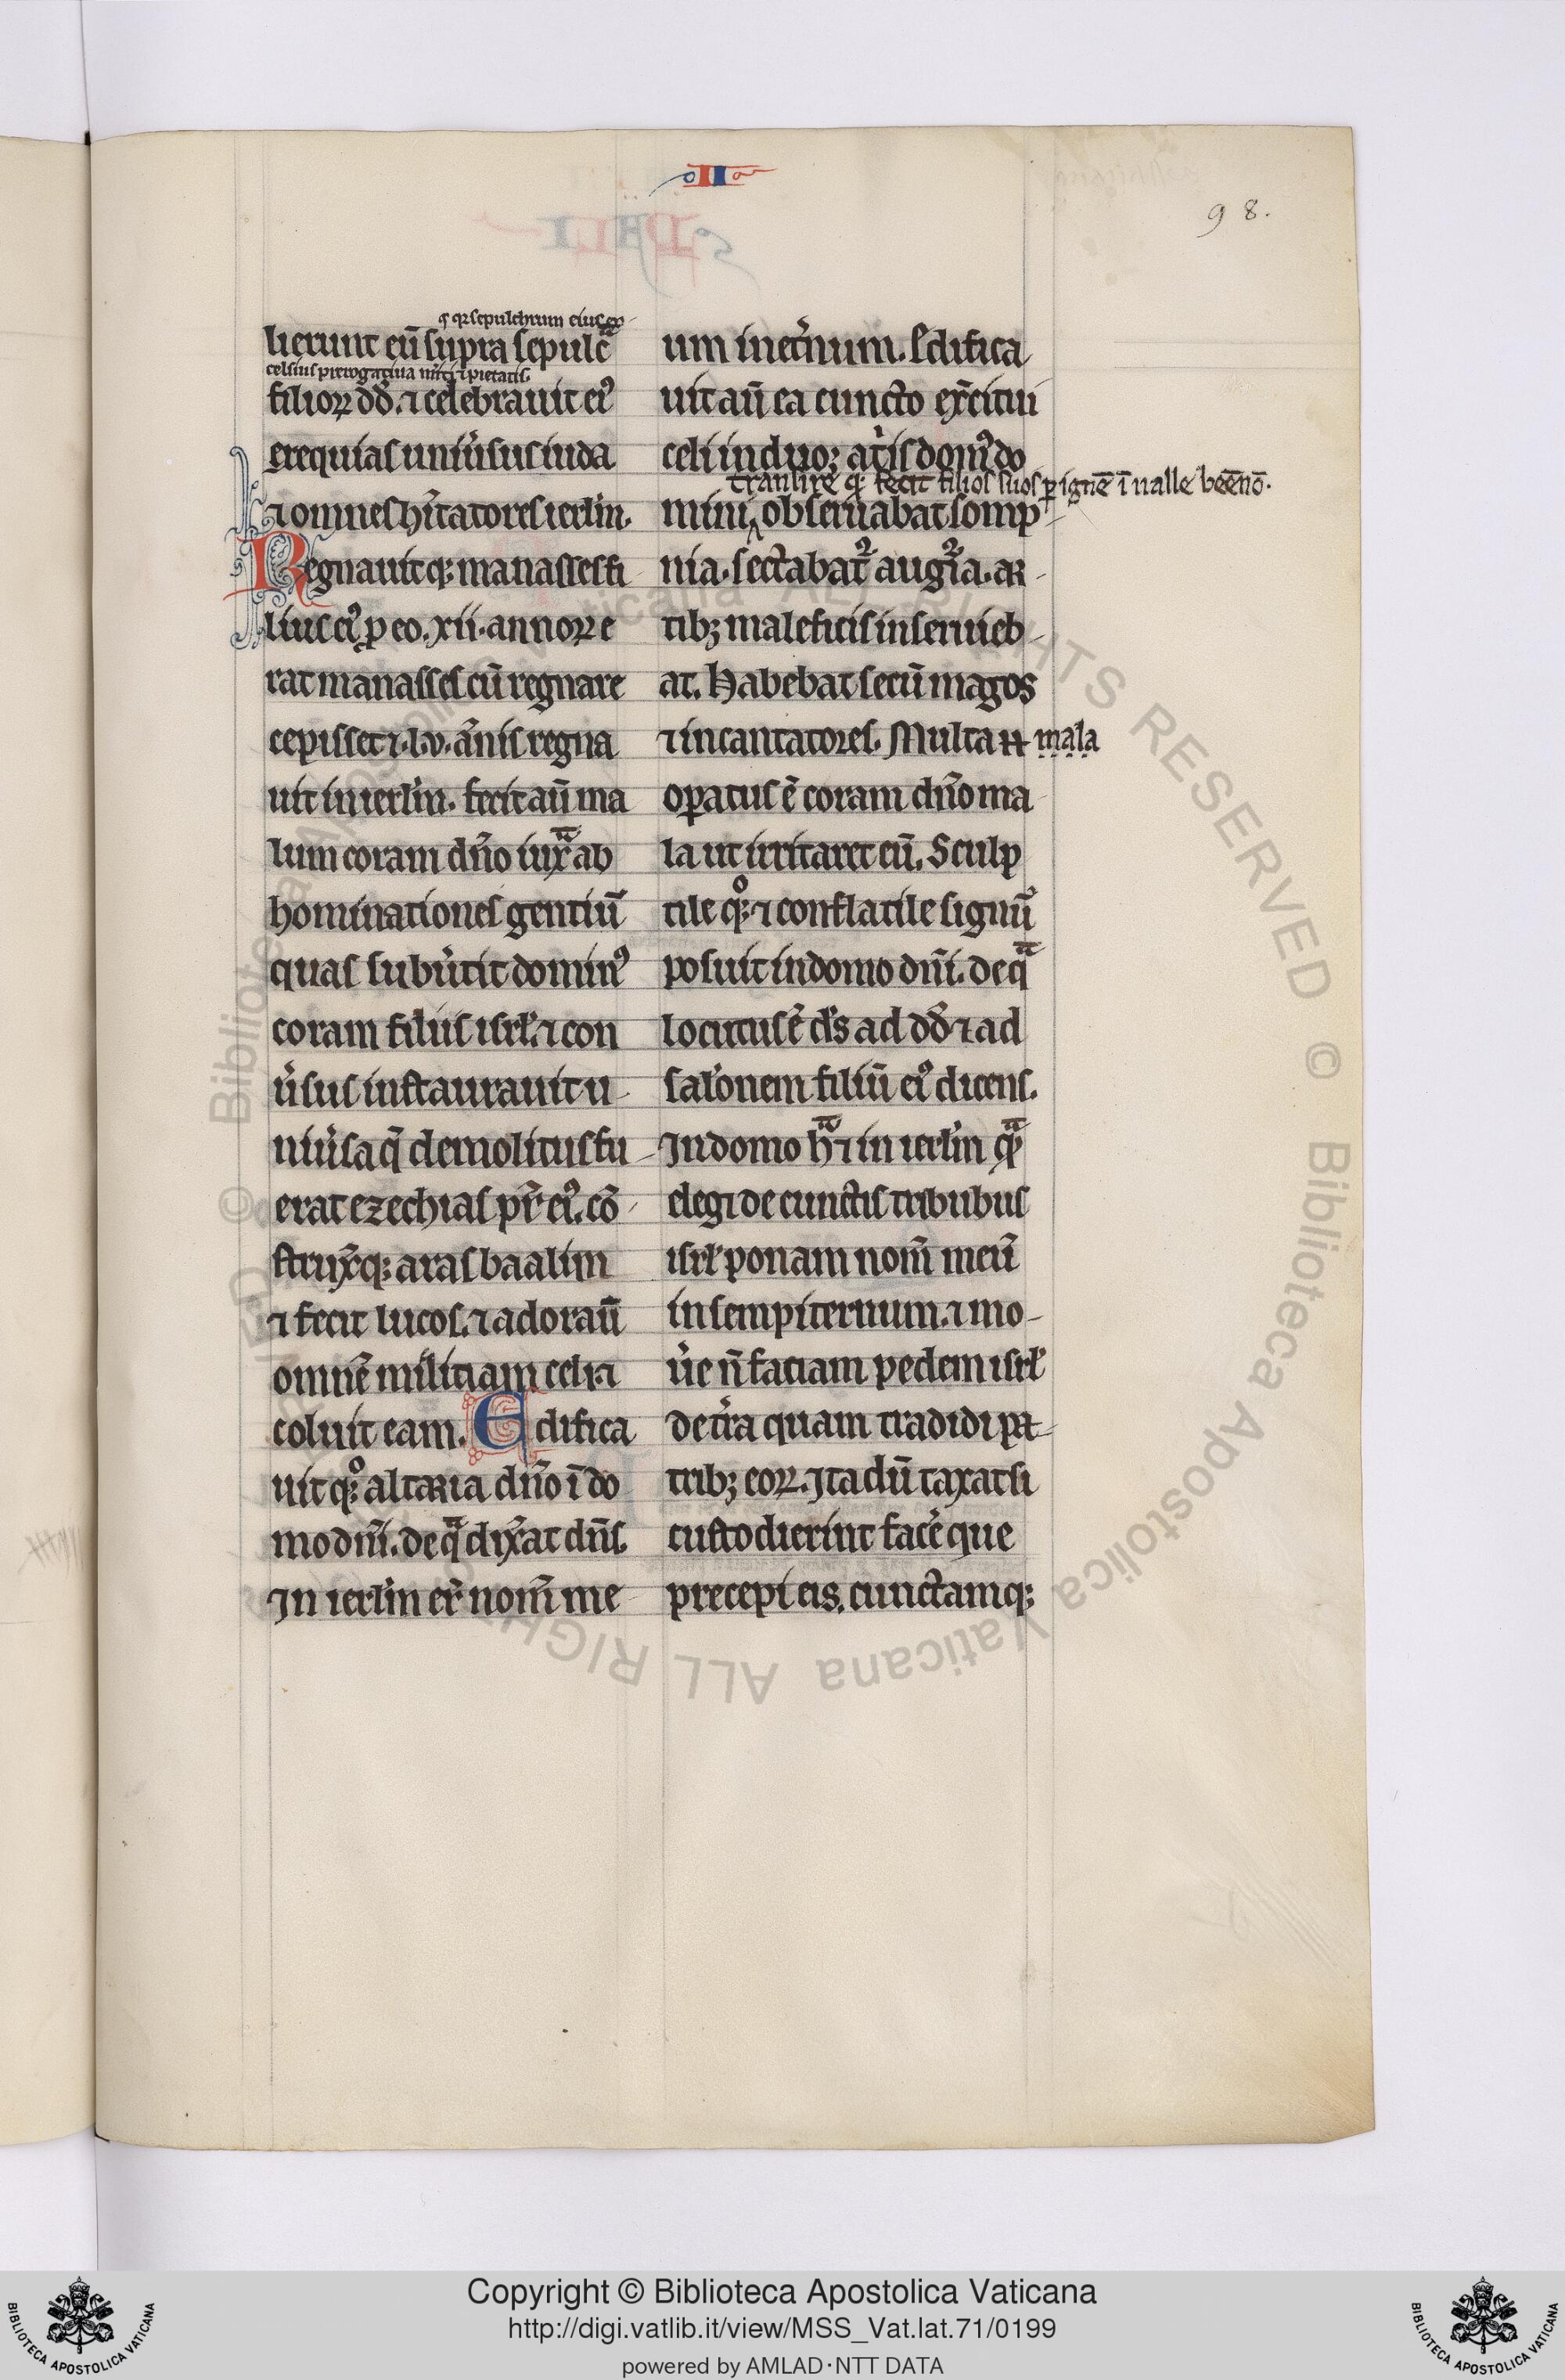 II
98.
q̄ qz sepulchrum eius ex
lierunt eū supra sepulc̄
celsius prerogatiua m̄iti ⁊ pietatis.
filioꝝ dd̄. ⁊ celebrauit eiꝰ
exequias uniu̾sus iuda
⁊ omnes hītatores ierlm̄.
Regnauit qꝫ manasses fi
lius eiꝰ ꝓ eo. xii. annoꝝ e
rat manasses cū regnare
cepisset ⁊ .l.v. ānis regna
uit in ierlm̄. fecit aū ma
lum coram dn̄o iuxᵃ ab
hominationes gentiū
quas subu̾tit dominꝰ
coram filiis isrl̄. ⁊ con
u̾sus instaurauit u
niu̾sa q̄ demolitus fu
erat ezechias pr̄ eiꝰ. cō
strux̄qꝫ aras baalim
⁊ fecit lucos. ⁊ adorau̅
omnē militiam celi. ⁊
coluit eam. Edifica
uit qꝫ° altaria dn̄o ī do
mo dn̄i. de qᵃ dix̾at dn̄s.
In ierlm̄ er̄ nom̄ me
um inet̾num. Edifica
uit aū ea cuncto ex̾citui
celi in duoꝫ at̾is domꝰ do
transire qꝫ fecit filios suos ꝑ ignē ī ualle beēnō.
mini, obseruabat somp
nia. sectabat᷑ aug᷑ia. ar
tibꝫ maleficis inseruieb
at. Habebat secū magos
⁊ incantatores. Multa mala
opatus ē coram dn̄o ma
la ut irritaret eū. Sculp
tile qꝫ° ⁊ conflatile signū
posuit in domo dn̄i. de qᵃ
locutus ē ds̄ ad dd̄ ⁊ ad
salōnem filiū eiꝰ dicens.
In domo hᵃ ⁊ in ierlm̄ qᵃ
elegi de cunctis tribubus
isrl̄ ponam nom̄ meū
in sempiternum. ⁊ mo
u̾e n̄ faciam pedem isrl̄
de t̾ra quam tradidi pa
tribꝫ eoꝝ. Ita dū taxat si
custodierint fac̾e que
precepi eis. cunctamqꝫ
Copyright © Biblioteca Apostolica Vaticana
http://digi.vatlib.it/view/MSS_Vat.lat.71/0199
powered by AMLAD·NTT DATA
BIBLIOTECA APOSTOLICA VATICANA
BIBLIOTECA APOSTOLICA VATICANA